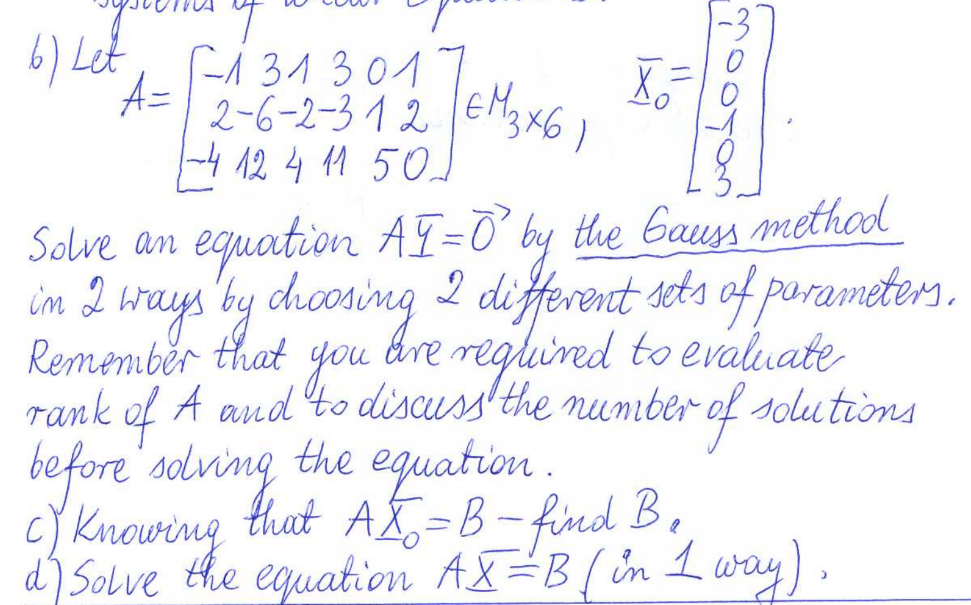 systems of linear equations.
b) Let
A = [ -1 3 1 3 0 1 ] ∈ M₃ₓ₆ , X̄₀ = [ -3 ] .
2 -6 -2 -3 1 2 0
-4 12 4 11 5 0 0
-1
0
3
Solve an equation AȲ = 0⃗ by the Gauss method
in 2 ways by choosing 2 different sets of parameters.
Remember that you are required to evaluate
rank of A and to discuss the number of solutions
before solving the equation.
c) Knowing that AX̄₀ = B - find B.
d) Solve the equation AX̄ = B (in 1 way).